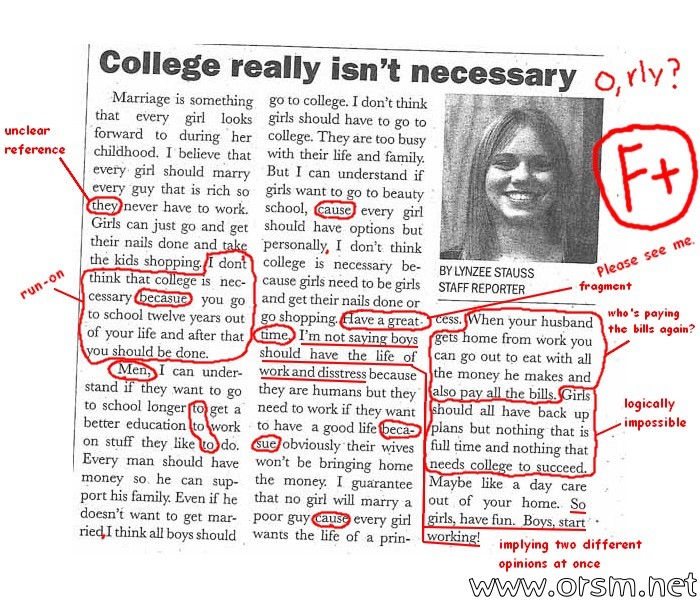 College really isn't necessary
o, rly?
Marriage is something
that every girl looks
forward to during her
childhood. I believe that
every girl should marry
every guy that is rich so
they never have to work.
Girls can just go and get
their nails done and take
the kids shopping. I dont
think that college is nec-
cessary becasue you go
to school twelve years out
of your life and after that
you should be done.
Men, I can under-
stand if they want to go
to school longer to get a
better education to work
on stuff they like to do.
Every man should have
money so he can sup-
port his family. Even if he
doesn't want to get mar-
ried, I think all boys should
go to college. I don't think
girls should have to go to
college. They are too busy
with their life and family.
But I can understand if
girls want to go to beauty
school, cause every girl
should have options but
personally, I don't think
college is necessary be-
cause girls need to be girls
and get their nails done or
go shopping. Have a great-
time, I'm not saying boys
should have the life of
work and disstress because
they are humans but they
need to work if they want
to have a good life beca-
sue obviously their wives
won't be bringing home
the money. I guarantee
that no girl will marry a
poor guy cause every girl
wants the life of a prin-
BY LYNZEE STAUSS
STAFF REPORTER
cess. When your husband
gets home from work you
can go out to eat with all
the money he makes and
also pay all the bills. Girls
should all have back up
plans but nothing that is
full time and nothing that
needs college to succeed.
Maybe like a day care
out of your home. So
girls, have fun. Boys, start
working!
unclear
reference
run-on
F+
Please see me.
fragment
who's paying
the bills again?
logically
impossible
implying two different
opinions at once
www.orsm.net